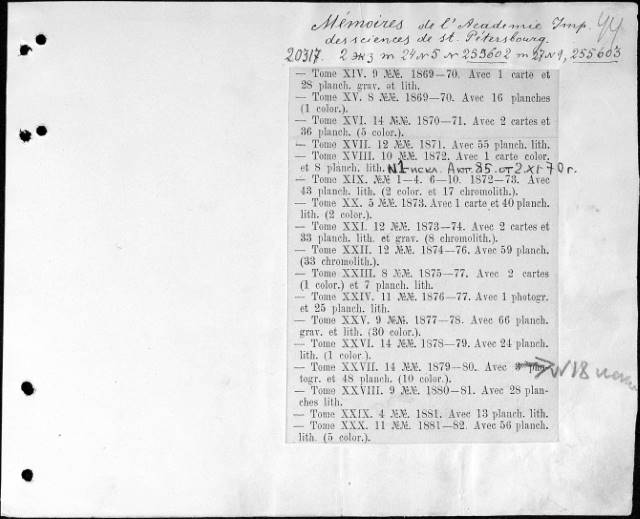 Mémoires de l'Academie Imp. 44
des sciences de St. Pétersbourg.
20317. 2 ЖЗ т 24 №5 № 255602 т 27 №9, 255603
— Tome XIV. 9 №№. 1869—70. Avec 1 carte et
28 planch. grav. et lith.
— Tome XV. 8 №№. 1869—70. Avec 16 planches
(1 color.).
— Tome XVI. 14 №№. 1870—71. Avec 2 cartes et
36 planch. (5 color.).
— Tome XVII. 12 №№. 1871. Avec 55 planch. lith.
— Tome XVIII. 10 №№. 1872. Avec 1 carte color.
et 8 planch. lith. №1 искл. Акт. 85. от 2 XI 70 г.
— Tome XIX. №№ 1—4. 6—10. 1872—73. Avec
43 planch. lith. (2 color. et 17 chromolith.).
— Tome XX. 5 №№. 1873. Avec 1 carte et 40 planch.
lith. (2 color.).
— Tome XXI. 12 №№. 1873—74. Avec 2 cartes et
33 planch. lith. et grav. (8 chromolith.).
— Tome XXII. 12 №№. 1874—76. Avec 59 planch.
(33 chromolith.).
— Tome XXIII. 8 №№. 1875—77. Avec 2 cartes
(1 color.) et 7 planch. lith.
— Tome XXIV. 11 №№. 1876—77. Avec 1 photogr.
et 25 planch. lith.
— Tome XXV. 9 №№. 1877—78. Avec 66 planch.
grav. et lith. (30 color.).
— Tome XXVI. 14 №№. 1878—79. Avec 24 planch.
lith. (1 color.).
— Tome XXVII. 14 №№. 1879—80. Avec 3 pho-
togr. et 48 planch. (10 color.). №18
— Tome XXVIII. 9 №№. 1880—81. Avec 28 plan-
ches lith.
— Tome XXIX. 4 №№. 1881. Avec 13 planch. lith.
— Tome XXX. 11 №№. 1881—82. Avec 56 planch.
lith. (5 color.).